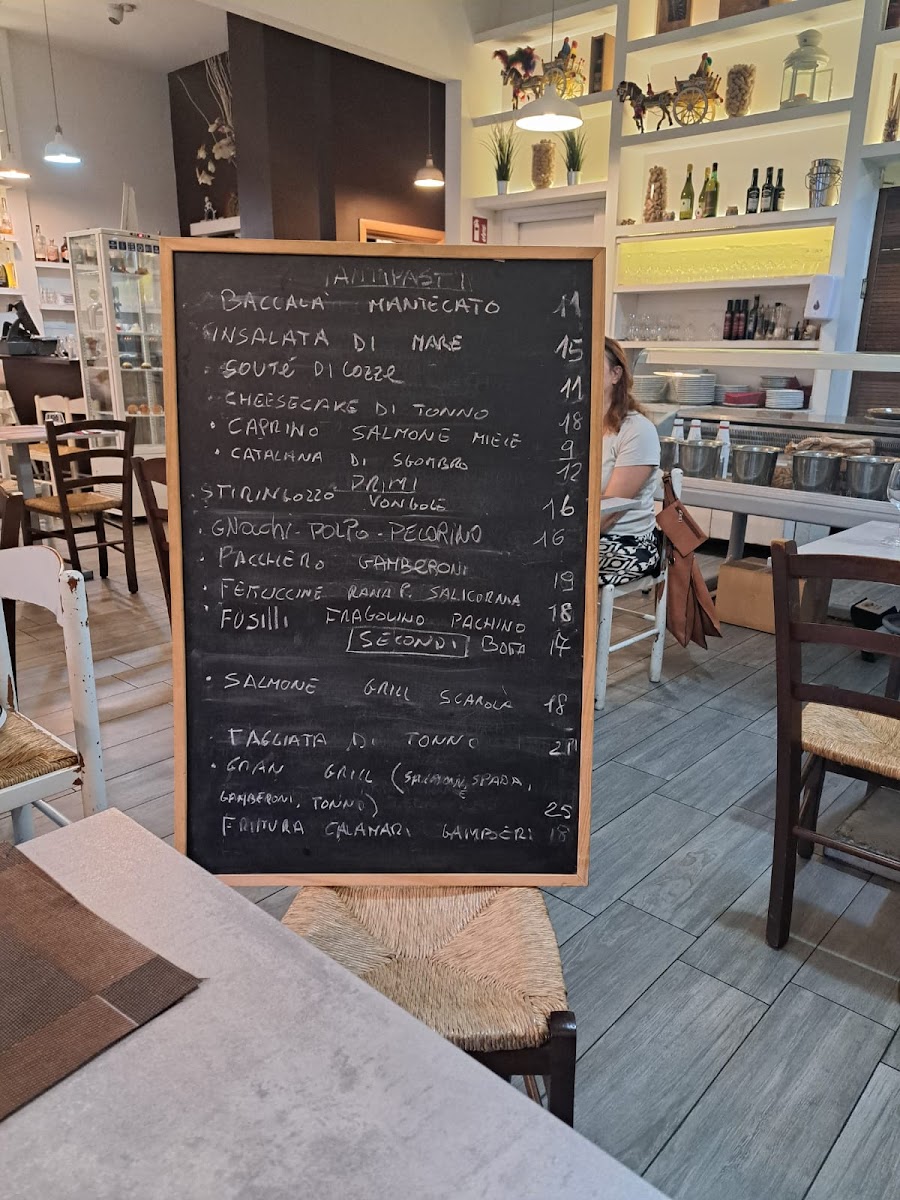 ANTIPASTI
BACCALA' MANTECATO 11
INSALATA DI MARE 15
SOUTÉ DI COZZE 11
CHEESECAKE DI TONNO 18
CAPRINO SALMONE MIELE 9
CATALANA DI SGOMBRO 12
PRIMI
STIRINGOZZO VONGOLE 16
GNOCCHI - POLPO - PECORINO 16
PACCHERO GAMBERONI 19
FETUCCINE RANA P. SALICORNIA 18
FUSILLI FRAGOLINO PACHINO 17
SECONDI
SALMONE GRILL SCAROLA 18
TAGLIATA DI TONNO
GRAN GRILL (SALMONE, SPADA,
GAMBERONI, TONNO) 25
FRITTURA CALAMARI GAMBERI 18